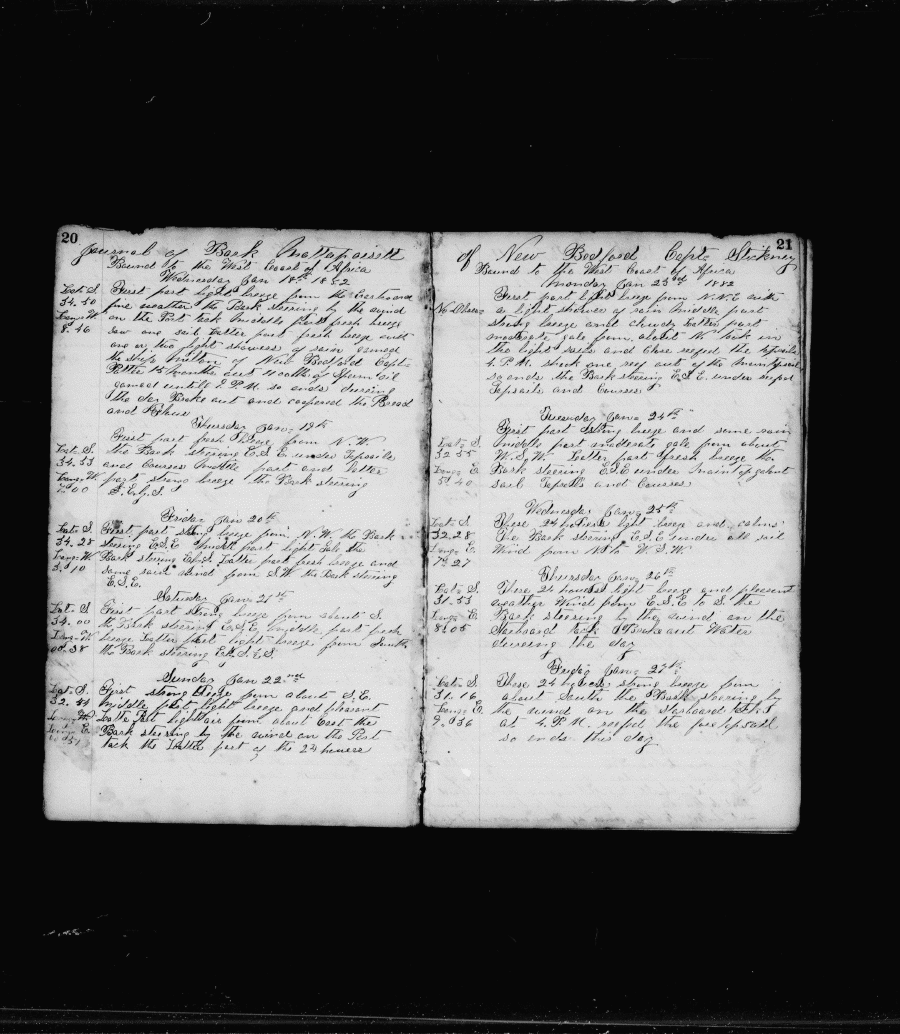 20
Journal of Bark Mattapoisett
Bound to the West Coast of Africa
Wednesday Jan 18th 1882
Lat. S. 34.50 Long. W. 8.46
First part light breeze from the Eastward
fine weather the Bark steering by the wind
on the Port tack Middle part fresh breeze
saw one sail Latter part fresh breeze and
one or two light showers of rain gamed
the Ship Milton of New Bedford Capt
Potter 15 months out
gamed untill 9 P.M. so ends during
the day Broke out and coopered the Bread
and
Thursday Jan 19th
Lat. S. 34.53 Long. W. 7.00
First part fresh breeze from N.W.
the Bark steering E.S.E. under Topsails
and Courses Middle part and Latter
part strong breeze the Bark steering
Friday Jan 20th
Lat. S. 34.28 Long. W. 3.10
First part strong breeze from N.W. the Bark
steering E.S.E. Middle part light the
Bark steering Latter part fresh breeze and
some rain wind from S.W. the Bark steering
E.S.E.
Saturday Jan 21st
Lat. S. 34.00 Long. W. 00.38
First part strong breeze from about S.
the Bark steering E.S.E. Middle part fresh
breeze Latter part light breeze from South
the Bark steering
Sunday Jan 22nd
Lat. S. 32.54 Long. E.
First strong breeze from about S.E.
Middle part light breeze and plesent
Latter Part light air from about East the
Bark steering by the wind on the Port
tack the Latter part of the 24 houers
21
of New Bedford Capt. Stickney
Bound to the West Coast of Africa
Monday Jan 23rd 1882
No Obser
First part light breeze from N.N.E with
a light shower of rain Middle part
strong breeze and cloudy Latter part
moderate gale from about W. took in
the light sails and close reefed the topsails
4. P.M. shook one reef out of the mainsail
so ends the Bark steering E.S.E. under
Topsails and Courses
Tuesday Jan 24th
Lat. S. 32.55 Long. E. 5.40
First part strong breeze and some rain
Middle part moderate gale from about
W.S.W. Latter part fresh breeze the
Bark steering E.S.E under main topgalant
sail Topsails and Courses
Wednesday Jan 25th
Lat. S. 32.28 Long. E. 7.27
These 24 houers light breeze and calms
the Bark steering E.S.E under all sail
Wind from N. to W.S.W.
Thursday Jan 26th
Lat. S. 31.53 Long. E. 8.05
These 24 houers light breeze and plesent
weather Wind from E.S.E to S. the
Bark steering by the wind on the
Starboard tack Broke out Water
dureing the day
Friday Jan 27th
Lat. S. 31.16 Long. E. 9.36
These 24 houers strong breeze from
about South the Bark steering by
the wind on the Starboard tack
at 4. P.M. reefed the fore topsail
so ends this day